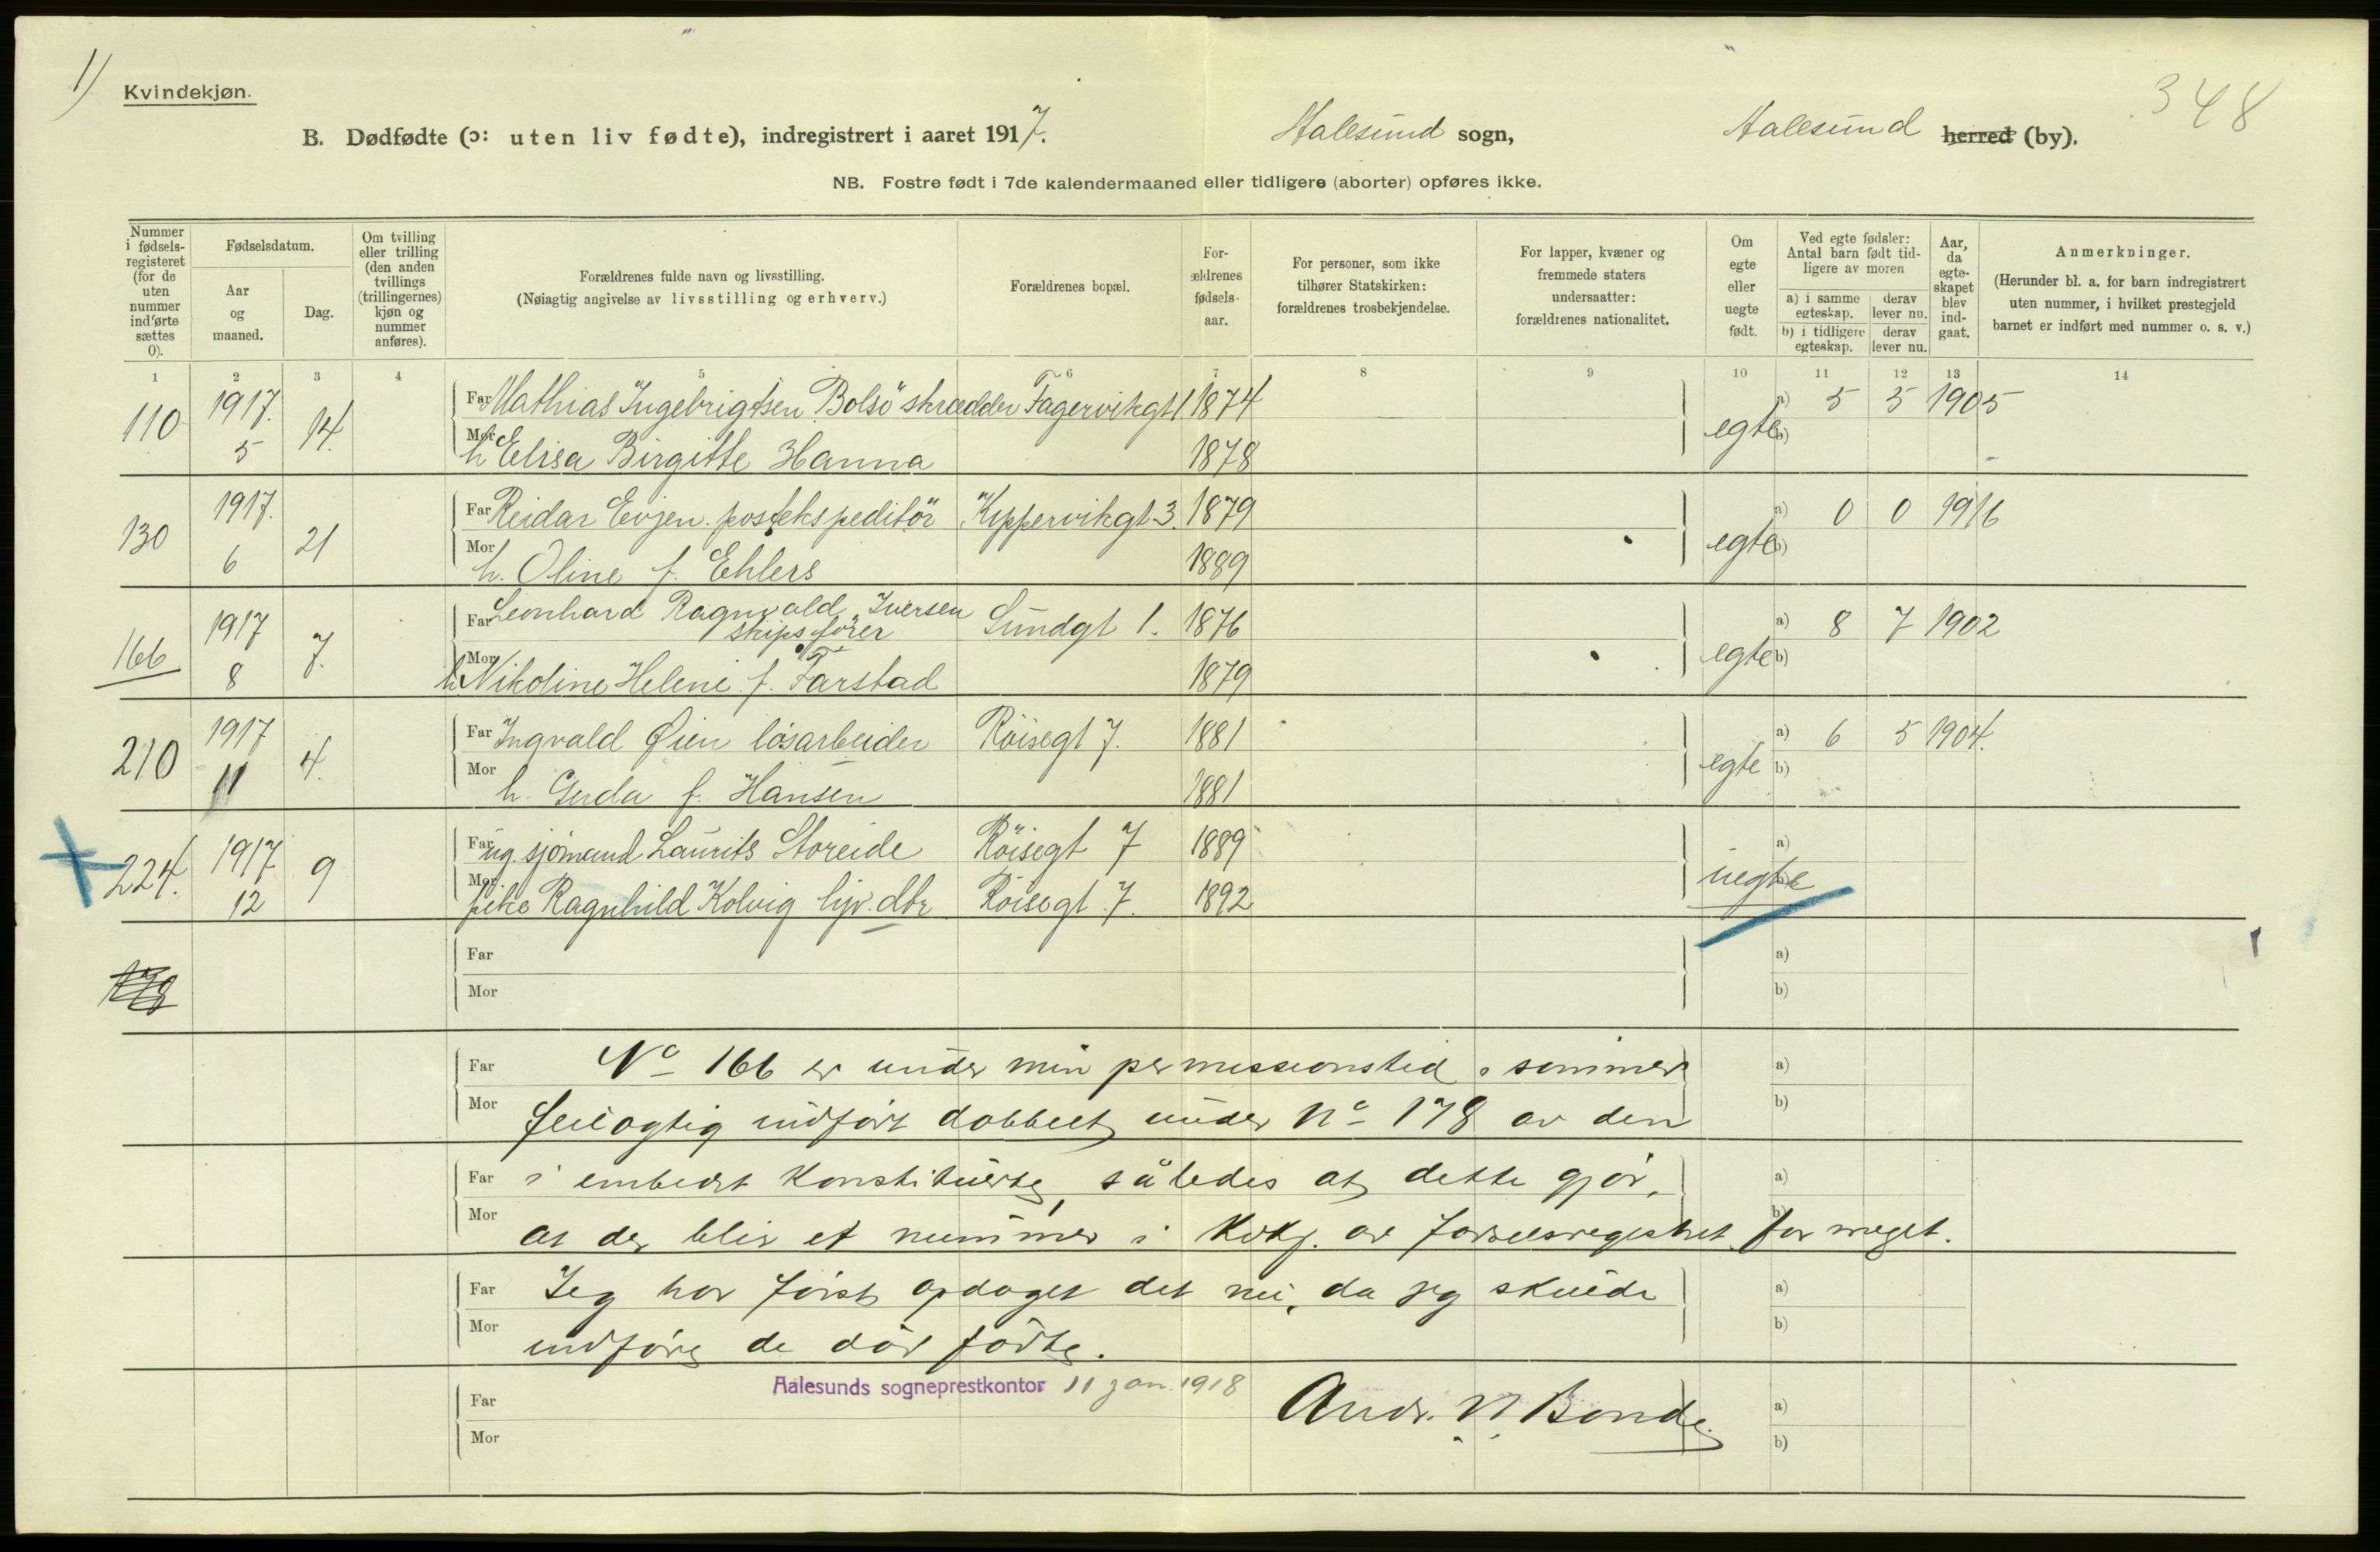 1)
Kvindekjøn.
348
B. Dødfødte (ɔ: uten liv fødte), indregistrert i aaret 1917. Aalesund sogn, Aalesund herred (by).
NB. Fostre født i 7de kalendermaaned eller tidligere (aborter) opføres ikke.
Nummer i fødsels-registeret (for de uten nummer indførte sættes 0).
Fødselsdatum.
Aar og maaned.
Dag.
Om tvilling eller trilling (den anden tvillings (trillingernes) kjøn og nummer anføres).
Forældrenes fulde navn og livsstilling.
(Nøiagtig angivelse av livsstilling og erhverv.)
Forældrenes bopæl.
For-ældrenes fødsels-aar.
For personer, som ikke tilhører Statskirken: forældrenes trosbekjendelse.
For lapper, kvæner og fremmede staters undersaatter: forældrenes nationalitet.
Om egte eller uegte født.
Ved egte fødsler: Antal barn født tid-ligere av moren
a) i samme egteskap. derav lever nu.
b) i tidligere egteskap. derav lever nu.
Aar, da egte-skapet blev ind-gaat.
Anmerkninger.
(Herunder bl. a. for barn indregistrert uten nummer, i hvilket prestegjeld barnet er indført med nummer o. s. v.)
1 2 3 4 5 6 7 8 9 10 11 12 13 14
110 1917. 5 14. Far Mathias Ingebrigtsen Bolsö skrædder Fagervikgt 1 1874 egte a) 5 5 1905
Mor h Elisa Birgitte Hanna 1878 b)
130 1917. 6 21 Far Reidar Evjen. postekspeditör Kippervikgt 3. 1879 egte a) 0 0 1916
Mor h. Oline f. Ehlers 1889 b)
166 1917 8 7. Far Leonhard Ragnvald Iversen skipsfører Sundgt 1. 1876 egte a) 8 7 1902
Mor h Nikoline Helene f. Farstad 1879 b)
210 1917 11 4. Far Ingvald Øien lösarbeider Röisegt 7. 1881 egte a) 6 5 1904.
Mor h. Gerda f. Hansen 1881 b)
224. 1917 12 9 Far ug. sjömand Laurits Storeide Röisegt 7 1889 uegte a)
Mor pike Ragnhild Kolvig hjv. dtr Röisegt 7. 1892
Far a)
Mor b)
Far No 166 er under min permissionstid i sommer a)
Mor feilagtig indført dobbelt under No 178 av den b)
Far i embedet konstituerte, således at dette gjør, a)
Mor at der blir et nummer i Kvkj. av fødselsregistret for meget. b)
Far Jeg har først opdaget det nu, da jeg skulde a)
Mor indføre de død fødte. b)
Aalesunds sogneprestkontor 11 jan. 1918
Far Andr. N. Bonde. a)
Mor b)